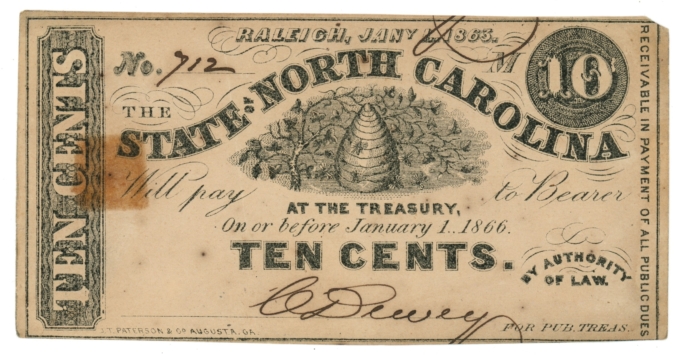 RALEIGH, JANY 1, 1863.
No. 712
M
10
THE
STATE OF NORTH CAROLINA
Will pay to Bearer
AT THE TREASURY,
On or before January 1.. 1866.
TEN CENTS.
BY AUTHORITY
OF LAW.
C Dewey
FOR PUB. TREAS.
J.T. PATERSON & CO AUGUSTA, GA.
TEN CENTS
RECEIVABLE IN PAYMENT OF ALL PUBLIC DUES